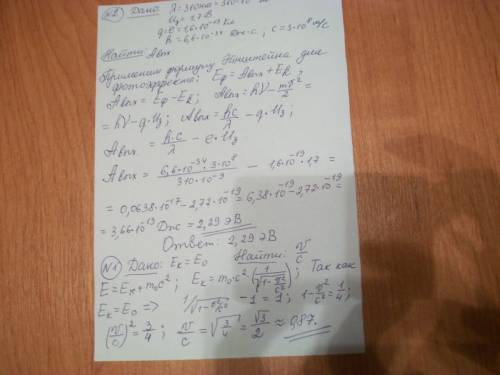 №2) Дано: λ = 310нм = 310·10
U₃ = 1,7 В
q=e = 1,6·10⁻¹⁹ Кл
h = 6,6·10⁻³⁴ Дж·с, с = 3·10⁸ м/с
Найти: Aвых
Применим формулу Эйнштейна для
фотоэффекта: Eф = Aвых + Eк
Aвых = Eф − Eк; Aвых = hν − mv²/2 =
= hν − q·U₃; Aвых = h·c/λ − q·U₃
Aвых = h·c/λ − e·U₃
Aвых = 6,6·10⁻³⁴·3·10⁸/310·10⁻⁹ − 1,6·10⁻¹⁹·1,7 =
= 0,0638·10⁻¹⁷ − 2,72·10⁻¹⁹ = 6,38·10⁻¹⁹ − 2,72·10⁻¹⁹ =
= 3,66·10⁻¹⁹ Дж = 2,29 эВ
Ответ: 2,29 эВ
№1) Дано: Eк = E₀ Найти: v/c
E = Eк + m₀c²; Eк = m₀·c²·(1/√1−v²/c² ; Так как
Eк = E₀ => 1/√1−v²/c² − 1 = 1; 1−v²/c² = 1/4;
(v/c)² = 3/4; v/c = √3/4 = √3/2 ≈ 0,87.